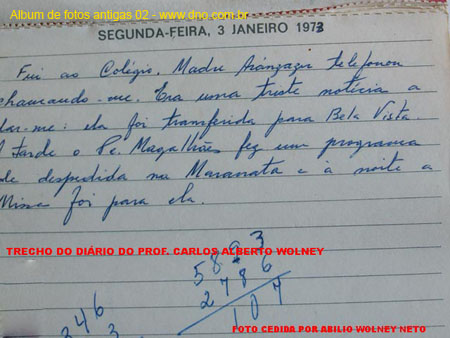 Album de fotos antigas 02 - www.dno.com.br
SEGUNDA-FEIRA, 3 JANEIRO 1973
Fui ao Colégio. Madre Aránzazu telefonou
chamando-me. Era uma triste notícia a
dar-me: ela foi transferida para Bela Vista.
À tarde o Pe. Magalhães fez um programa
de despedida na Maranata e à noite a
Missa foi para ela.
TRECHO DO DIÁRIO DO PROF. CARLOS ALBERTO WOLNEY
3
589
2786
107
346
3
FOTO CEDIDA POR ABILIO WOLNEY NETO